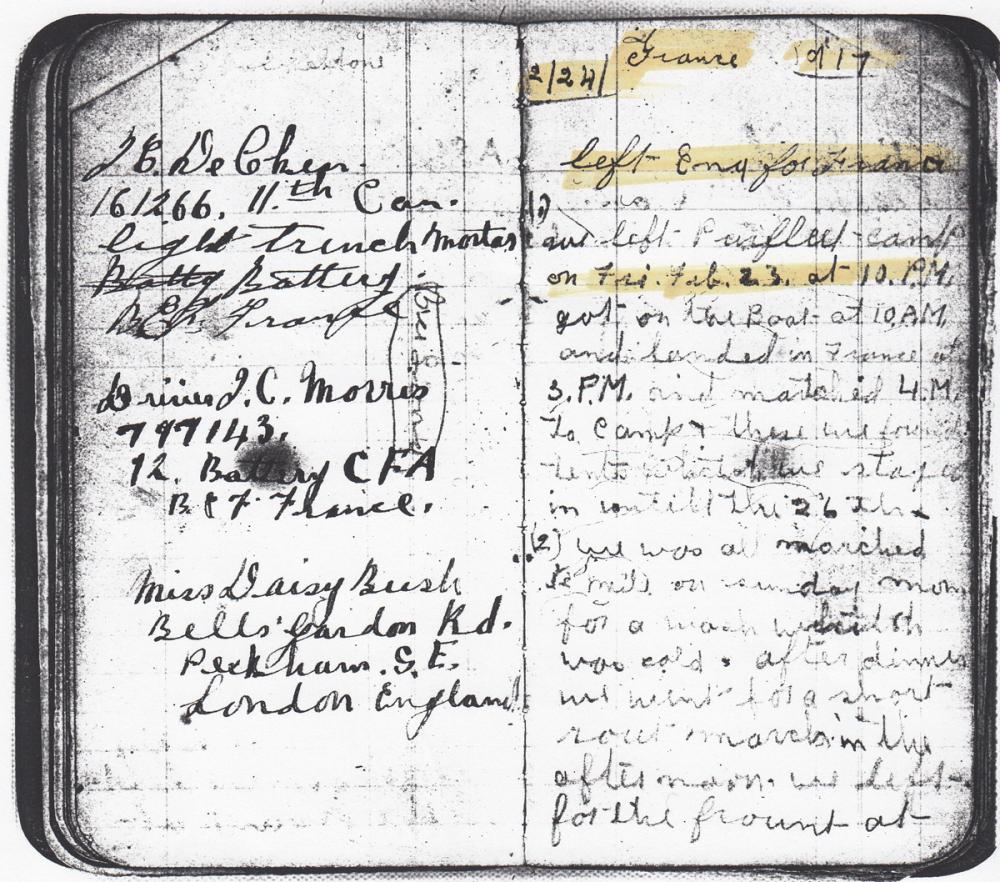 J.C. DeChen
161266. 11.th Can.
light trench mortar
Batty Battery
B.E.F. France
Driver J.C. Morris
797143.
12. Battery CFA
B E F France.
Miss Daisy Bush
Bells Gardon Rd.
Peckham. S.E.
London England
2/24/ France 1917
left Eng for France
(1)
we left Purfleet camp
on Fri. Feb. 23. at 10. P.M.
got on the Boat at 10 A.M.
and landed in France at
3. P.M. and matched 4. M.
to Camp there we found
tents which we stayed
in untill the 26 th.
(2) we was all marched
mile on sunday morn
for a wash which
was cold. after dinner
we went for a short
rout march in the
after noon. we left
for the frount at